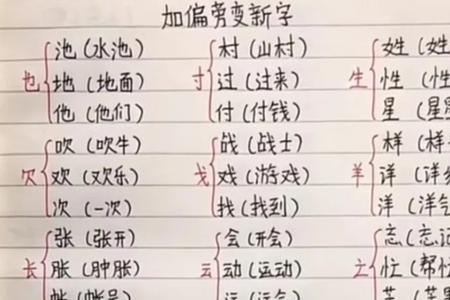 加偏旁变新字
池（水池） 村（山村） 姓（姓
也 地（地面） 寸 过（过来） 生 性（性
他（他们） 付（付钱） 星（星
吹（吹牛） 战（战士） 样（样
欠 欢（欢乐） 戈 戏（游戏） 羊 详（详
次（一次） 找（找到） 洋（洋
张（张开） 会（开会） 忘（忘记
长 胀（肿胀） 云 动（运动） 亡 忙（帮忙
帐（帐号 运（运气